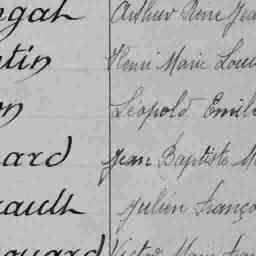 ngat Arthur René Jea
tin Henri Marie Loui
on Léopold Emile
ard Jean Baptiste M
ault Julien Franço
ouard Victor Marie Fran